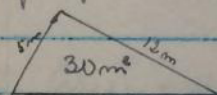 5m
12m
30m²